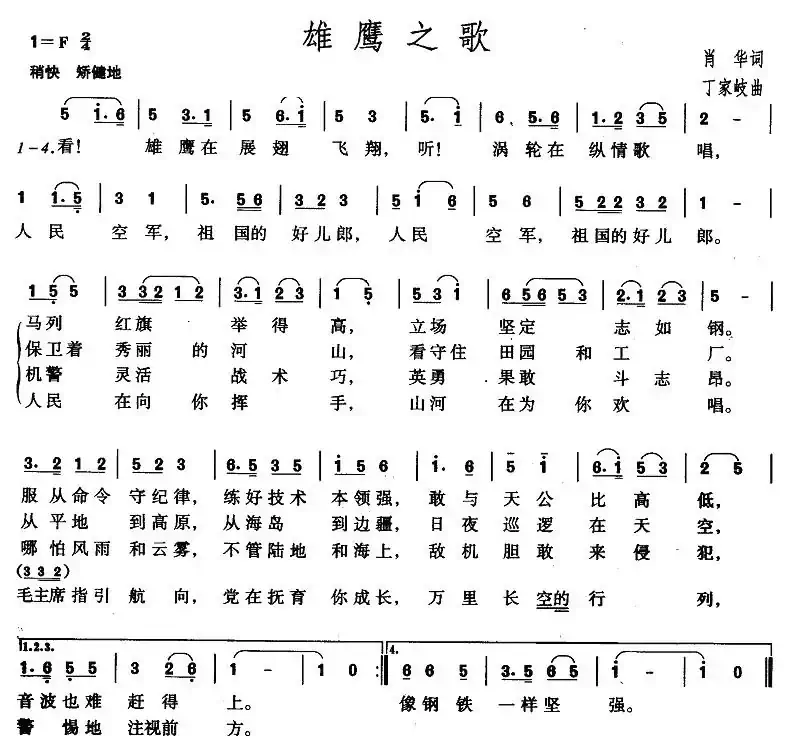 雄鹰之歌
1=F 2/4
稍快 矫健地
肖华词
丁家岐曲
5 1.6 | 5 3.1 | 5 6.1 | 5 3 | 5. 1 | 6. 5.6 | 1.2 3 5 | 2 - |
1-4.看! 雄鹰在展翅飞翔,听! 涡轮在纵情歌唱,
1 1.5 | 3 1 | 5. 5 6 | 3 2 3 | 5 1 6 | 5 5. | 5 2 2 3 2 | 1 - |
人民空军,祖国的好儿郎,人民空军,祖国的好儿郎。
1 5 5 | 3 3 2 1 2 | 3.1 2 3 | 1 5 | 5 3 1 | 6 5 6 5 3 | 2.1 2 3 | 5 - |
马列红旗举得高,立场坚定志如钢。
保卫着秀丽的河山,看守住田园和工厂。
机警灵活战术巧,英勇果敢斗志昂。
人民在向你挥手,山河在为你欢唱。
3. 2 1 2 | 5 2 3 | 6.5 3 5 | 1 5 6 | 1. 6 | 5 1 | 6.1 5 3 | 2 5 |
服从命令守纪律,练好技术本领强,敢与天公比高低,
从平地到高原,从海岛到边疆,日夜巡逻在天空,
哪怕风雨和云雾,不管陆地和海上,敌机胆敢来侵犯,
(3 3 2)
毛主席指引航向,党在抚育你成长,万里长空的行列,
1.2.3. 4.
1.6 5 5 | 3 2 6 | 1 - | 1 0 :| 6 6 5 | 3.5 6 5 | 1 - | 1 0 ||
音波也难赶得上。 像钢铁一样坚强。
警惕地注视前方。